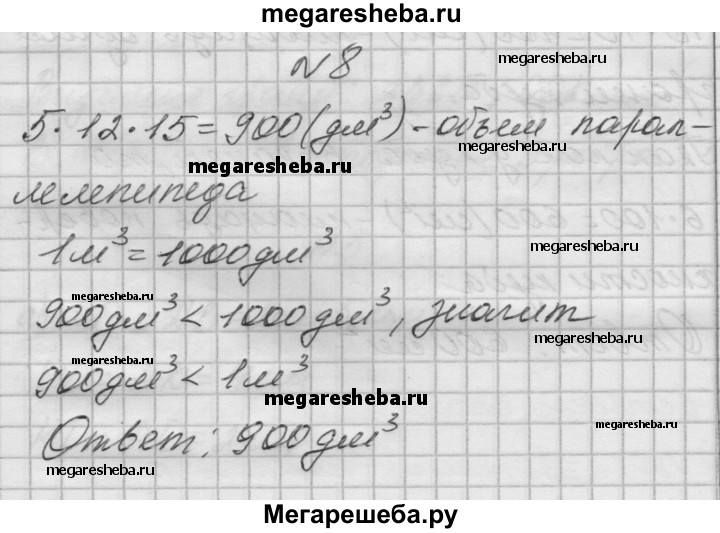 megaresheba.ru
№ 8
megaresheba.ru
5 · 12 · 15 = 900 (дм³) - объем парал-
megaresheba.ru
megaresheba.ru
лелепипеда
1 м³ = 1000 дм³
megaresheba.ru
megaresheba.ru
900 дм³ < 1000 дм³, значит
megaresheba.ru
megaresheba.ru
900 дм³ < 1 м³
megaresheba.ru
Ответ: 900 дм³
megaresheba.ru
megaresheba.ru
Мегарешеба.ру